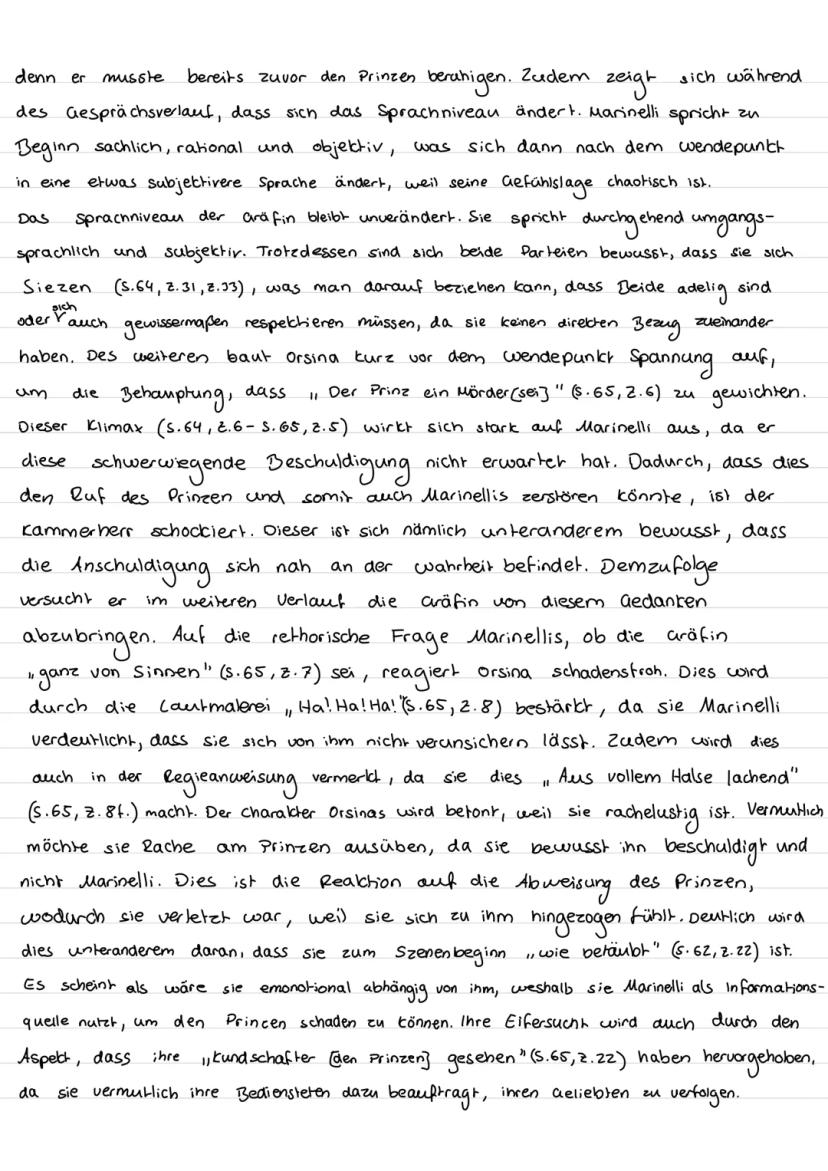 denn er musste bereits zuvor den Prinzen beruhigen. Zudem zeigt sich während
des Gesprächsverlauf, dass sich das Sprachniveau ändert. Marinelli spricht zu
Beginn sachlich, rational und objektiv, was sich dann nach dem Wendepunkt
in eine etwas subjektivere Sprache ändert, weil seine Gefühlslage chaotisch ist.
Das Sprachniveau der Gräfin bleibt unverändert. Sie spricht durchgehend umgangs-
sprachlich und subjektiv. Trotzdessen sind sich beide Parteien bewusst, dass sie sich
Siezen (S.64, Z.31, Z.33), was man darauf beziehen kann, dass Beide adelig sind
oder sich auch gewissermaßen respektieren müssen, da sie keinen direkten Bezug zueinander
haben. Des weiteren baut Orsina kurz vor dem Wendepunkt Spannung auf,
um die Behauptung, dass „Der Prinz ein Mörder[sei]" (S.65, Z.6) zu gewichten.
Dieser Klimax (S.64, Z.6- S.65, Z.5) wirkt sich stark auf Marinelli aus, da er
diese schwerwiegende Beschuldigung nicht erwartet hat. Dadurch, dass dies
den Ruf des Prinzen und somit auch Marinellis zerstören könnte, ist der
Kammerherr schockiert. Dieser ist sich nämlich unteranderem bewusst, dass
die Anschuldigung sich nah an der Wahrheit befindet. Demzufolge
versucht er im weiteren Verlauf die Gräfin von diesem Gedanken
abzubringen. Auf die rethorische Frage Marinellis, ob die Gräfin
„ganz von Sinnen" (S.65, Z.7) sei, reagiert Orsina schadensfroh. Dies wird
durch die Lautmalerei „Ha! Ha! Ha!"(S.65, Z.8) bestärkt, da sie Marinelli
verdeutlicht, dass sie sich von ihm nicht verunsichern lässt. Zudem wird dies
auch in der Regieanweisung vermerkt, da sie dies „Aus vollem Halse lachend"
(S.65, Z.8f.) macht. Der Charakter Orsinas wird betont, weil sie rachelustig ist. Vermutlich
möchte sie Rache am Prinzen ausüben, da sie bewusst ihn beschuldigt und
nicht Marinelli. Dies ist die Reaktion auf die Abweisung des Prinzen,
wodurch sie verletzt war, weil sie sich zu ihm hingezogen fühlt. Deutlich wird
dies unteranderem daran, dass sie zum Szenenbeginn „wie betäubt" (S.62, Z.22) ist.
Es scheint als wäre sie emonotional abhängig von ihm, weshalb sie Marinelli als Informations-
quelle nutzt, um den Princen schaden zu können. Ihre Eifersucht wird auch durch den
Aspekt, dass ihre „Kundschafter [den Prinzen] gesehen" (S.65, Z.22) haben hervorgehoben,
da sie vermutlich ihre Bediensteten dazu beauftragt, ihren Geliebten zu verfolgen.